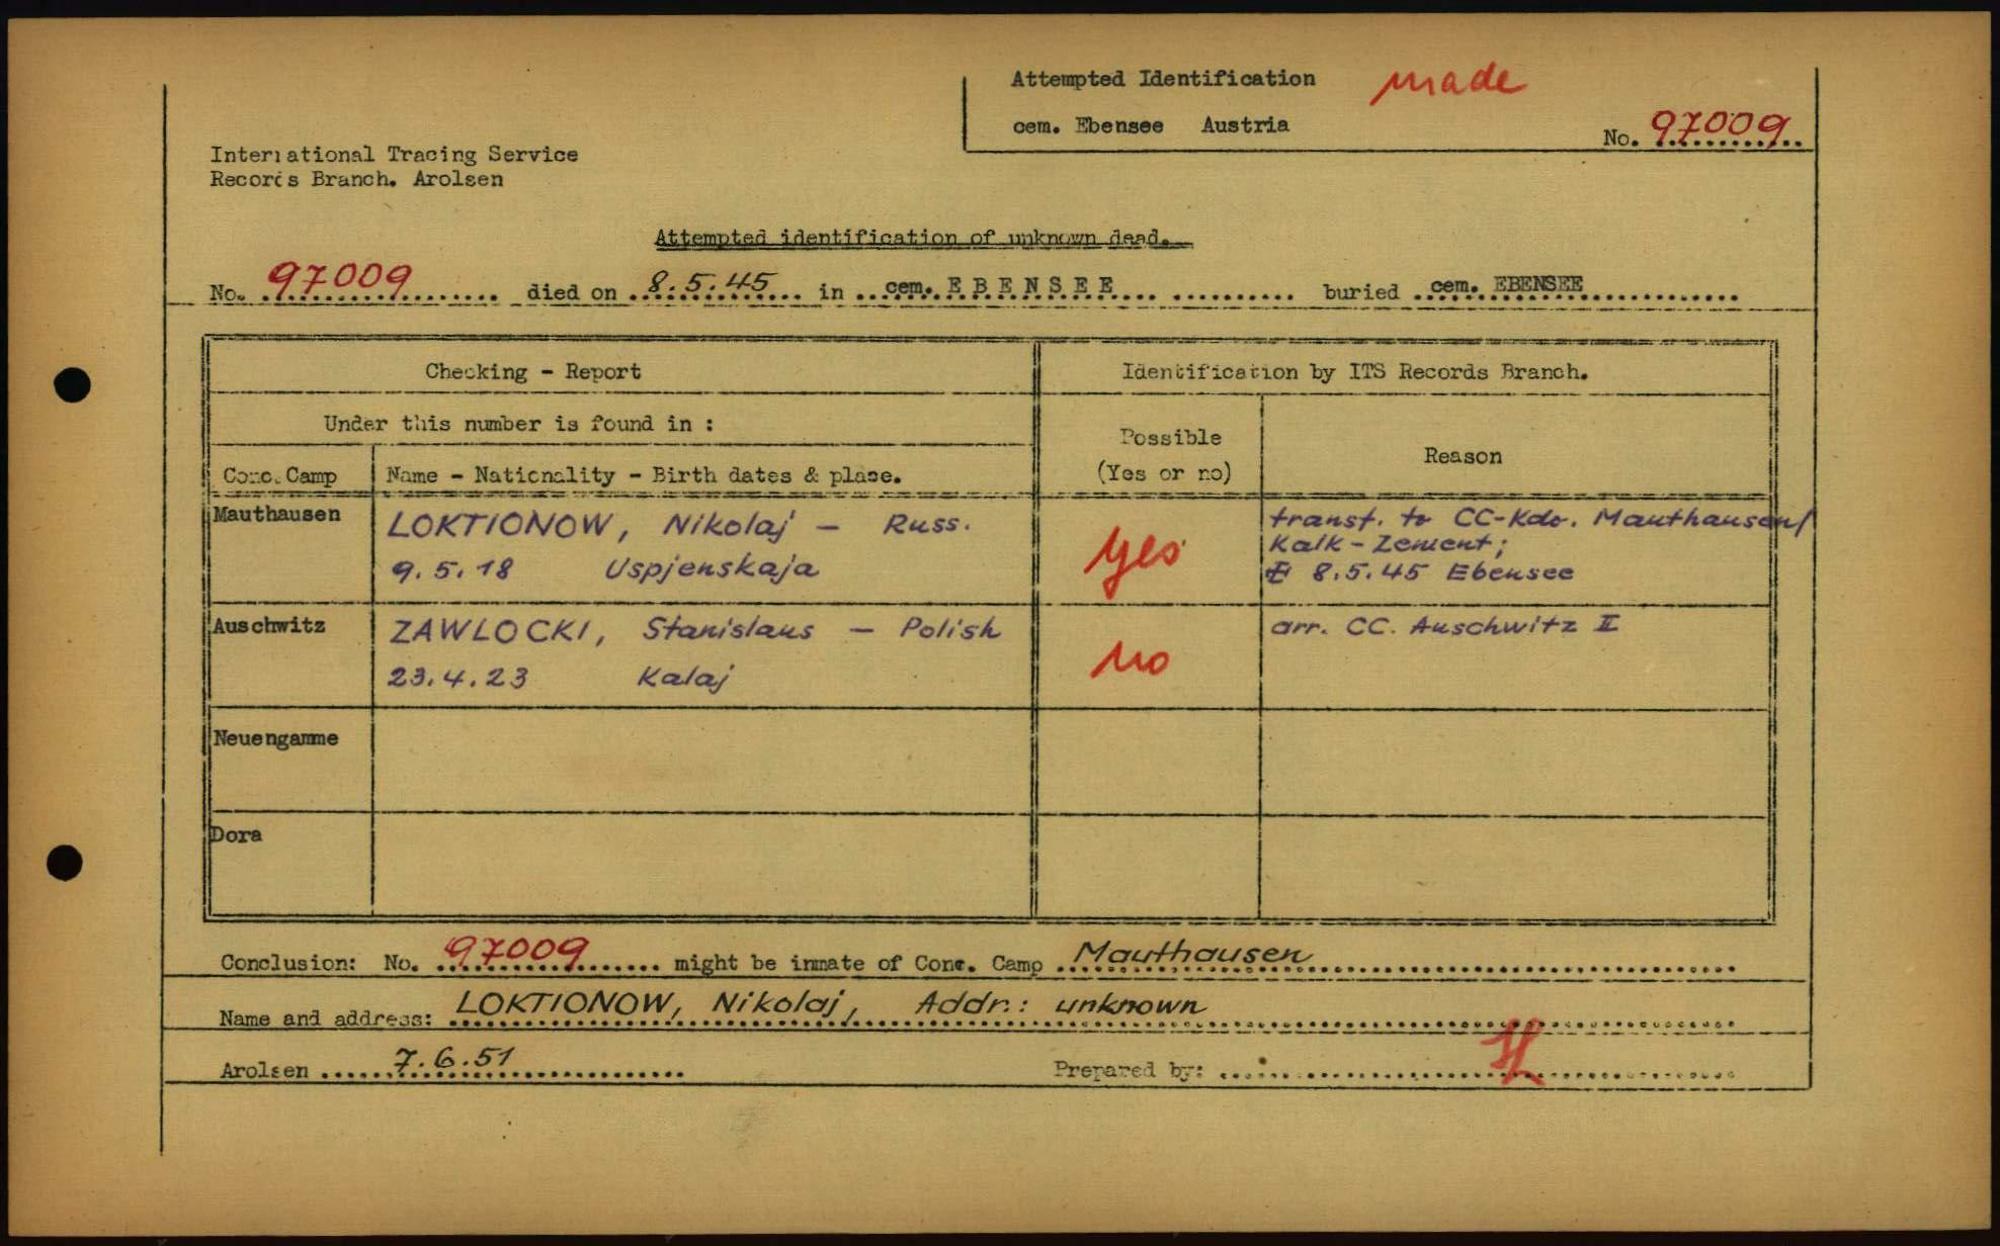 Attempted Identification made
cem. Ebensee Austria
No. 97009
International Tracing Service
Records Branch. Arolsen
Attempted identification of unknown dead.
No. 97009 died on 8.5.45 in cem. EBENSEE buried cem. EBENSEE
Checking - Report
Identification by ITS Records Branch.
Under this number is found in :
Possible
(Yes or no)
Reason
Conc.Camp
Name - Nationality - Birth dates & place.
Mauthausen
LOKTIONOW, Nikolaj - Russ.
9.5.18 Uspjenskaja
yes
transf. to CC-Kdo. Mauthausen/
Kalk-Zement;
8.5.45 Ebensee
Auschwitz
ZAWLOCKI, Stanislaus - Polish
23.4.23 Kalaj
no
arr. CC. Auschwitz II
Neuengamme
Dora
Conclusion: No. 97009 might be inmate of Conc. Camp Mauthausen
Name and address: LOKTIONOW, Nikolaj, Addr.: unknown
Arolsen 7.6.51 Prepared by: